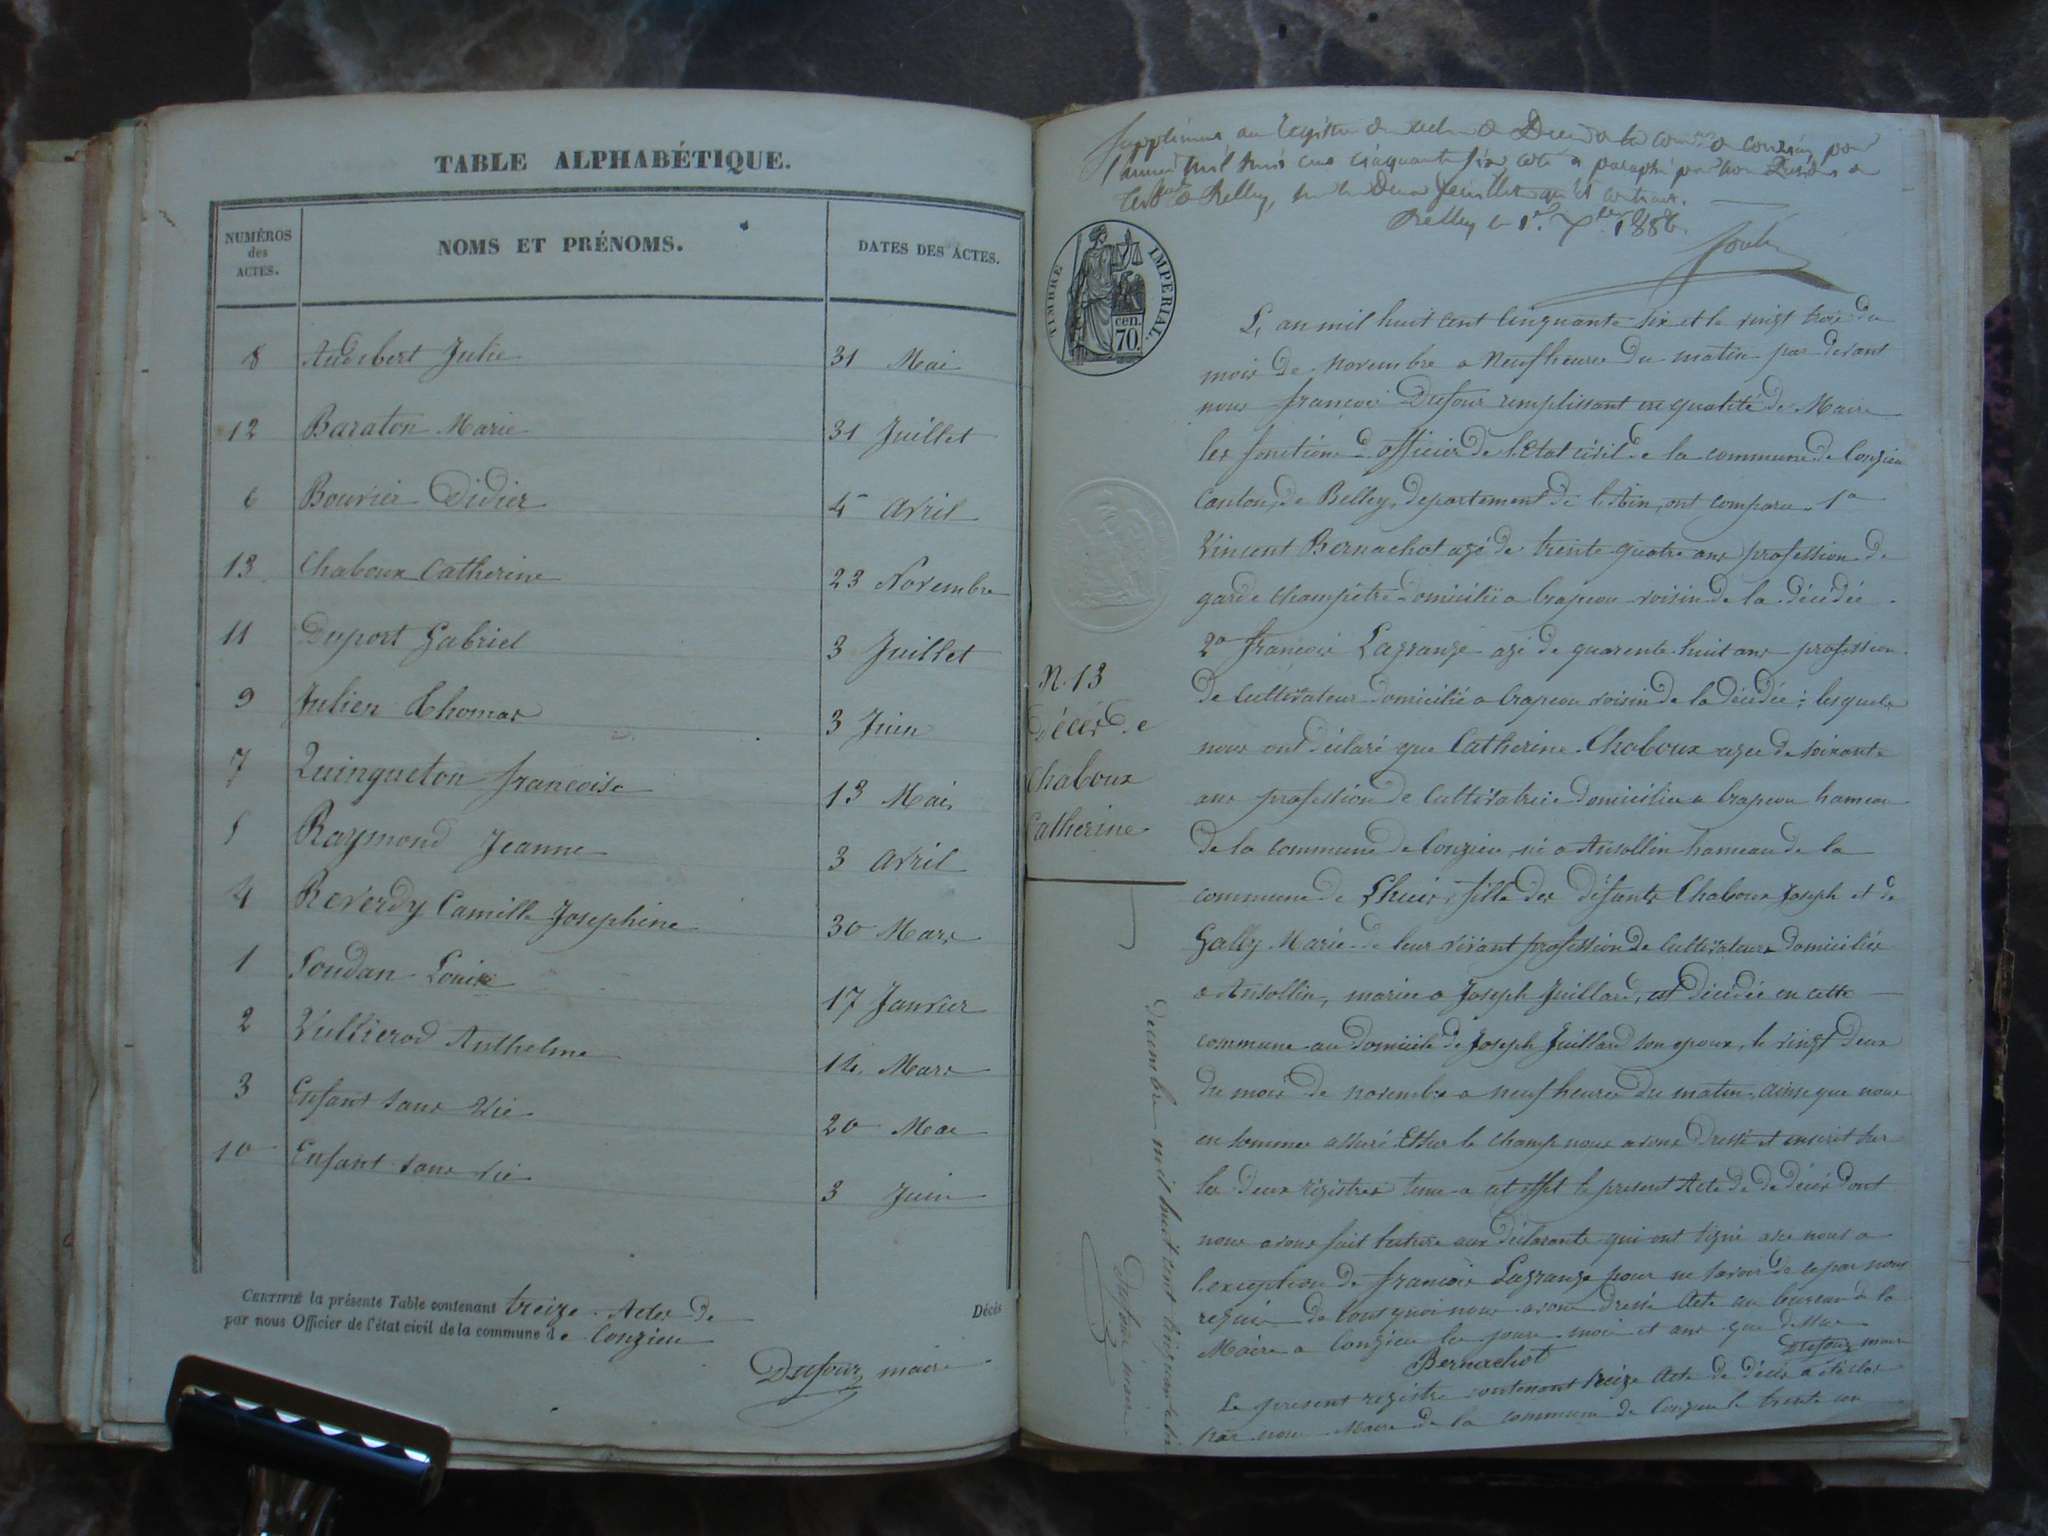 TABLE ALPHABÉTIQUE.
NUMÉROS des ACTES.
NOMS ET PRÉNOMS.
DATES DES ACTES.
8 Audibert Julie 31 Mai
12 Baraton Marie 31 Juillet
6 Bouvier Didier 4 Avril
13 Chaboux Catherine 23 Novembre
11 Duport Gabriel 3 Juillet
9 Julien Thomas 3 Juin
7 Quinqueton francoise 13 Mai
5 Raymond Jeanne 3 Avril
4 Reverdy Camille Josephine 30 Mars
1 Soudan Louise 17 Janvier
2 Vullierod Anthelme 14 Mars
3 Enfant sans vie 20 Mar
10 Enfant sans vie 3 Juin
CERTIFIÉ la présente Table contenant treize Actes de Décès
par nous Officier de l'état civil de la commune de Conzieu
Dufour maire
de Belley, sur les Deux feuillets qu'il contient.
Belley le 1er 1856.
TIMBRE IMPERIAL.
cen. 70.
N. 13
Décès de
Chaboux
Catherine
L'an mil huit cent cinquante six et le vingt trois du
mois de Novembre a Neuf heures du matin par devant
nous francois Dufour remplissant en qualité de Maire
les fonctions d'officier de l'Etat civil de la commune de Conzieu
Canton de Belley, departement de l'Ain, ont comparu 1º
Vincent Bernachot agé de trente quatre ans profession de
garde champêtre domicilié a Crapeou voisin de la décédée
2º francois Lagrange agé de quarente huit ans profession
de Cultivateur domicilié a Crapeou voisin de la décédée; lesquels
nous ont déclaré que Catherine Chaboux agée de soixante
ans profession de Cultivatrice domiciliée a Crapeou hameau
de la commune de Conzieu, né a Ansollin hameau de la
commune de Lhuis, fille des défunts Chaboux Joseph et de
Gally Marie de leur vivant profession de Cultivateurs domiciliés
a Ansollin, mariée a Joseph Juillard, est décédée en cette
commune au domicile de Joseph Juillard son epoux, le vingt deux
du mois de novembre a neuf heures du matin, ainsi que nous
en sommes assuré. Et sur le champ nous avons dressé et inscrit sur
les deux régistres tenus a cet effet le present Acte de décès dont
nous avons fait lecture aux déclarants qui ont signé avec nous a
l'exception de francois Lagrange pour ne savoir de ce par nous
requis de tout quoi nous avons dressé Acte au bureau de la
Mairie a Conzieu les jours mois et ans que dessus
Bernachot Dufour maire
Le present registre contenant treize Acte de décès a été clos
par nous Maire de la commune de Conzieu le trente un
decembre mil huit cent cinquante six
Dufour maire